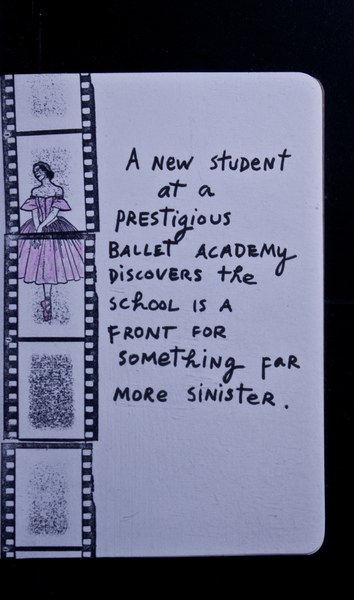 A NEW STUDENT
at a
PRESTIGIOUS
BALLET ACADEMY
DISCOVERS the
SCHOOL IS A
FRONT FOR
SOMETHING FAR
MORE SINISTER.